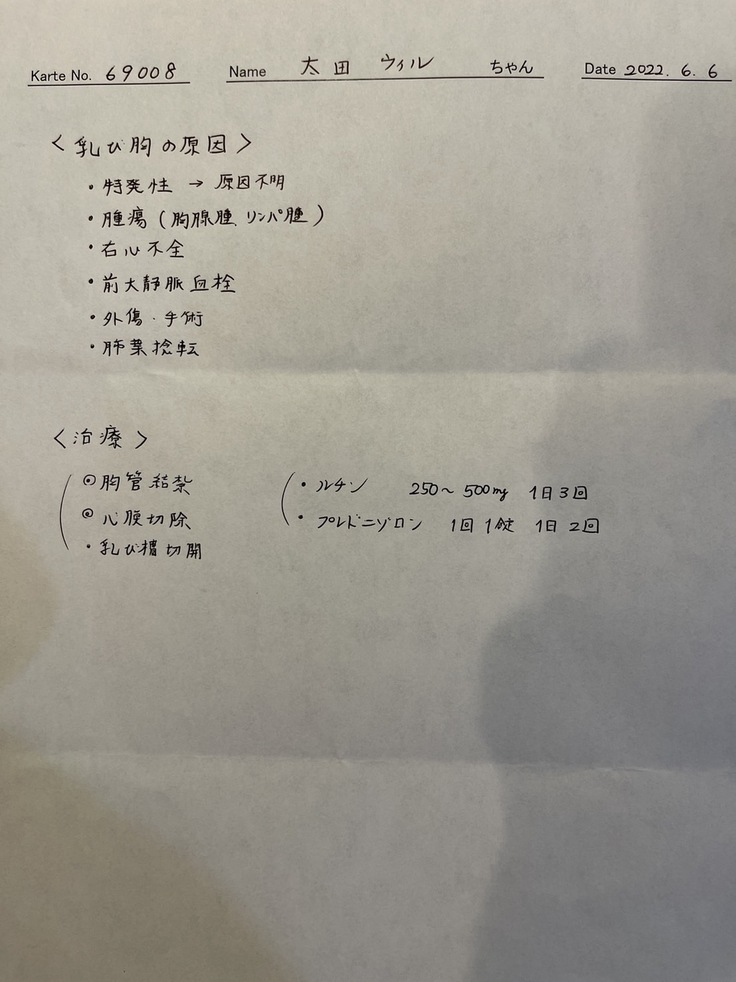 Karte No. 69008 Name 太田 ウィル ちゃん Date 2022. 6. 6
〈乳び胸の原因〉
・特発性 → 原因不明
・腫瘍（胸腺腫、リンパ腫）
・右心不全
・前大静脈血栓
・外傷・手術
・肺葉捻転
〈治療〉
◎胸管結紮
◎心膜切除
・乳び槽切開
・ルチン 250〜500mg 1日3回
・プレドニゾロン 1回1錠 1日2回